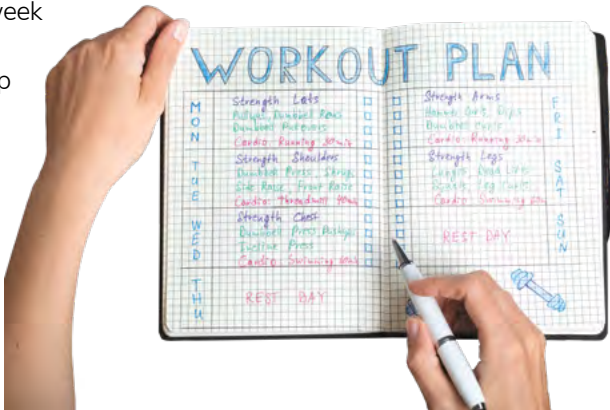 week
WORKOUT PLAN
MON
Strength Lats
Pullups, Dumbbell Rows
Dumbbell Pullovers
Cardio: Running 30min
TUE
Strength Shoulders
Dumbbell Press, Shrug,
Side Raise, Front Raise
Cardio: Threadmill 40min
WED
Strength Chest
Dumbbell Press, Pushups
Incline Press
Cardio: Swimming 60min
THU
REST DAY
Strength Arms
Hammer Curls, Dips
Dumbbell Curls
Cardio: Running 30min
FRI
Strength Legs
Lunges, Dead Lifts
Squats, Leg Curls
Cardio: Swimming
SAT
REST DAY
SUN